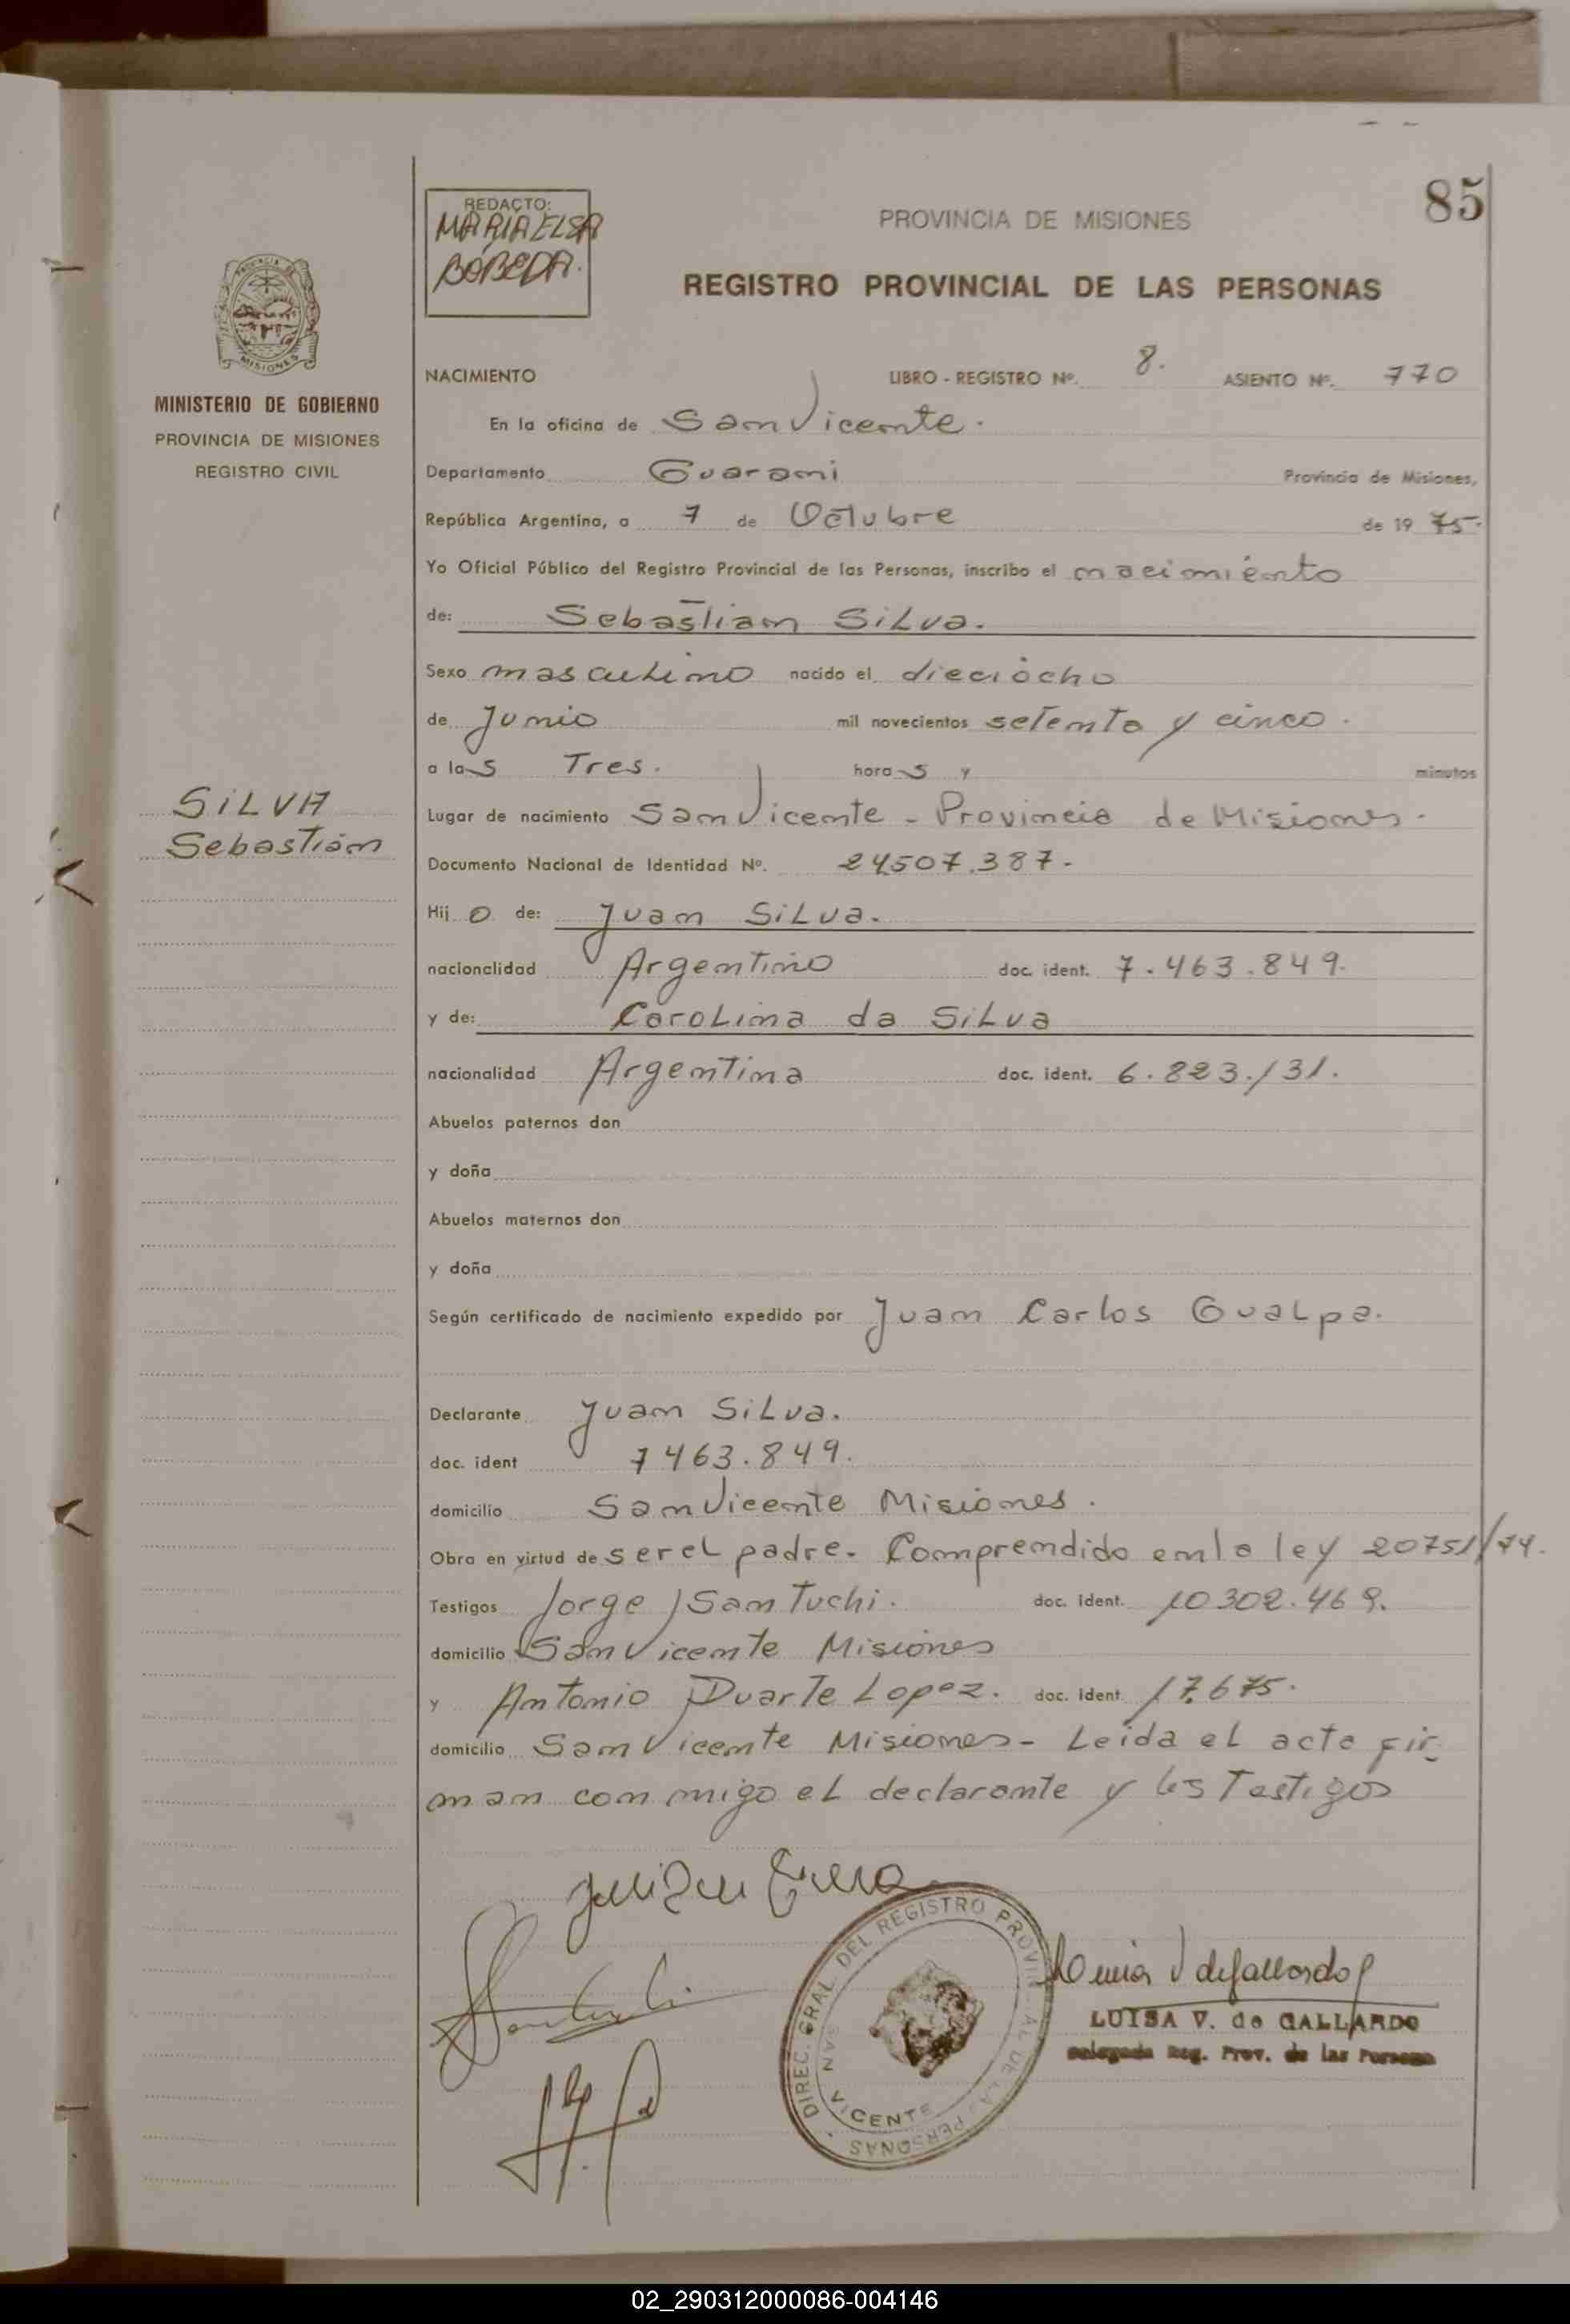 85
REDACTO:
MARIA ELSA
BOBEDA.
PROVINCIA DE MISIONES
REGISTRO PROVINCIAL DE LAS PERSONAS
PROVINCIA DE
MISIONES
MINISTERIO DE GOBIERNO
PROVINCIA DE MISIONES
REGISTRO CIVIL
NACIMIENTO LIBRO - REGISTRO Nº. 8. ASIENTO Nº. 770
En la oficina de San Vicente.
Departamento Guarani Provincia de Misiones,
República Argentina, a 7 de Octubre de 1975.
Yo Oficial Público del Registro Provincial de las Personas, inscribo el nacimiento
de: Sebastian Silva.
Sexo masculino nacido el dieciocho
de Junio mil novecientos setenta y cinco.
a las Tres. horas y minutos
SILVA
Sebastián
Lugar de nacimiento San Vicente - Provincia de Misiones.
Documento Nacional de Identidad Nº. 24507.387.
Hijo de: Juan Silva.
nacionalidad Argentino doc. ident. 7.463.849.
y de: Carolina da Silva
nacionalidad Argentina doc. ident. 6.823.131.
Abuelos paternos don
y doña
Abuelos maternos don
y doña
Según certificado de nacimiento expedido por Juan Carlos Gualpa.
Declarante Juan Silva.
doc. ident 7463.849.
domicilio San Vicente Misiones.
Obra en virtud de ser el padre. Comprendido en la ley 20751/74.
Testigos Jorge Santuchi. doc. ident. 10302.469.
domicilio San Vicente Misiones
y Antonio Duarte Lopez. doc. ident. 17.675.
domicilio San Vicente Misiones - Leida el acta fir-
man conmigo el declarante y los Testigos
DIREC. GRAL DEL REGISTRO PROVINCIAL DE LAS PERSONAS
SAN VICENTE
LUISA V. de GALLARDO
Delegada Reg. Prov. de las Personas
02_290312000086-004146